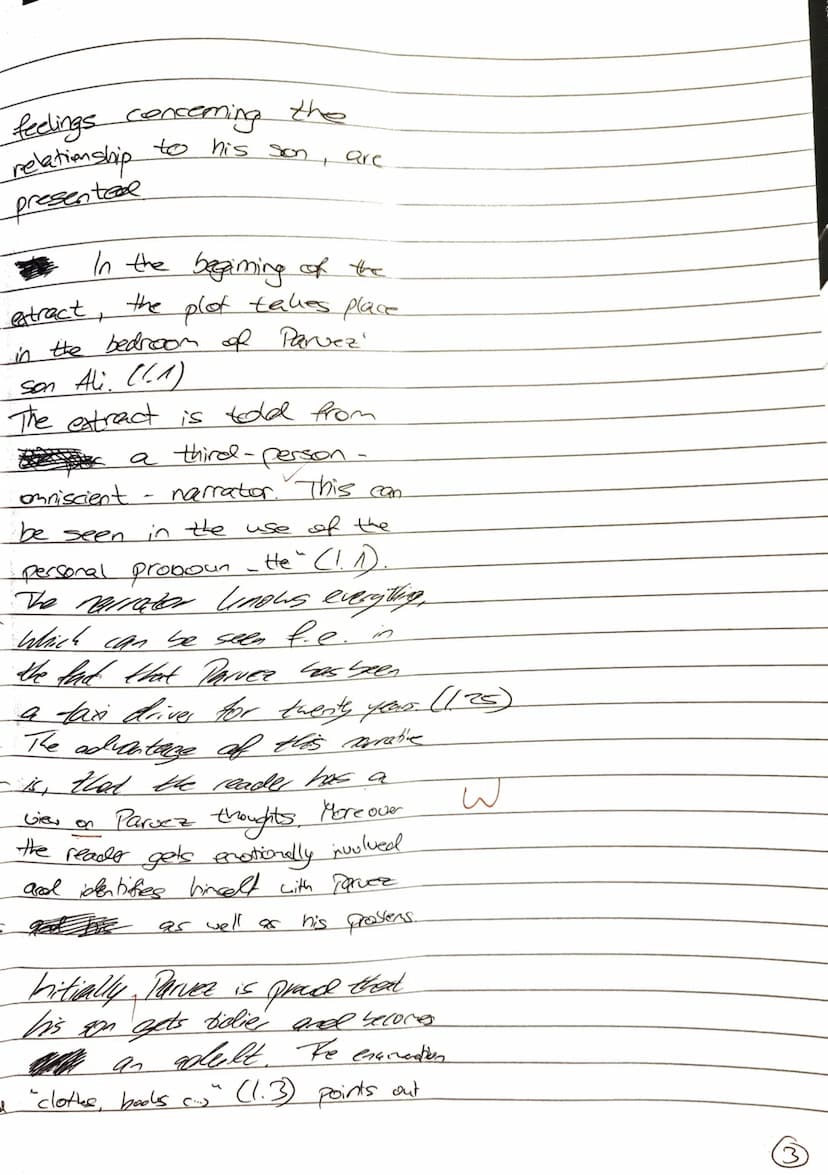 feelings concerning the
relationship to his son, are
presented
In the beginning of the
extract, the plot takes place
in the bedroom of Parvez'
son Ali. (l.1)
The extract is told from
a third-person-
omniscient-narrator. This can
be seen in the use of the
personal pronoun „He“ (l.1).
The narrator knows everything,
which can be seen f.e. in
the fact that Parvez has been
a taxi driver for twenty years. (l.25)
The advantage of this narrative
is, that the reader has a
view on Parvez thoughts. Moreover
W
the reader gets emotionally involved
and identifies himself with Parvez
as well as his problems.
Initially, Parvez is proud that
his son gets tidier and becomes
an adult. The enumeration
"clothes, books (...)" (l.3) points out
3